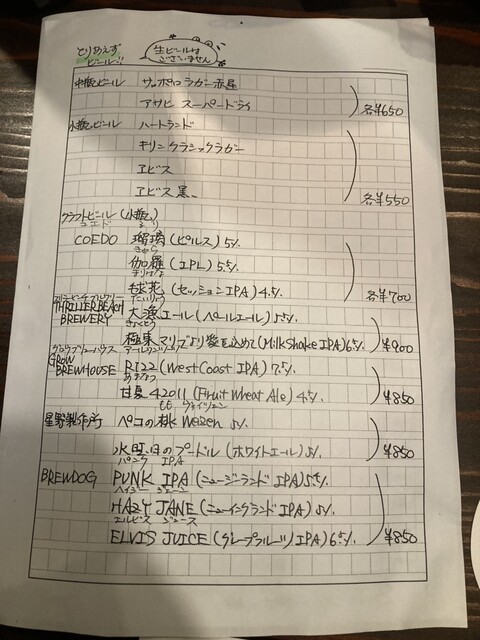 とりあえず
ビール!!
生ビールは
ございません
中瓶ビール サッポロラガー赤星
アサヒ スーパードライ
各¥650
小瓶ビール ハートランド
キリン クラシックラガー
ヱビス
ヱビス黒
各¥550
クラフトビール(小瓶)
コエド るり
COEDO 瑠璃(ピルス)5%
きゃら
伽羅(IPL)5.5%
まりはな
毬花(セッションIPA)4.5%
各¥700
スリラービーチブルワリー たいりょう
THRILLER BEACH BREWERY 大漁エール(ペールエール)5.5%
きょくとう
極東マリブより愛を込めて(MilkShake IPA)6%
¥900
グロウブリューハウス
GROW BREWHOUSE R122(West Coast IPA)7.5%
あまなつ
甘夏42011(Fruit Wheat Ale)4.5%
¥850
もも ヴァイツェン
星野製作所 ペコの桃 Weizen 5%
水曜日のプードル(ホワイトエール)5%
¥850
パンク IPA
BREWDOG PUNK IPA(ニュージランドIPA)5.5%
ヘイジー ジェーン
HAZY JANE(ニューイングランドIPA)5%
エルビス ジュース
ELVIS JUICE(グレープフルーツIPA)6.5%
¥850